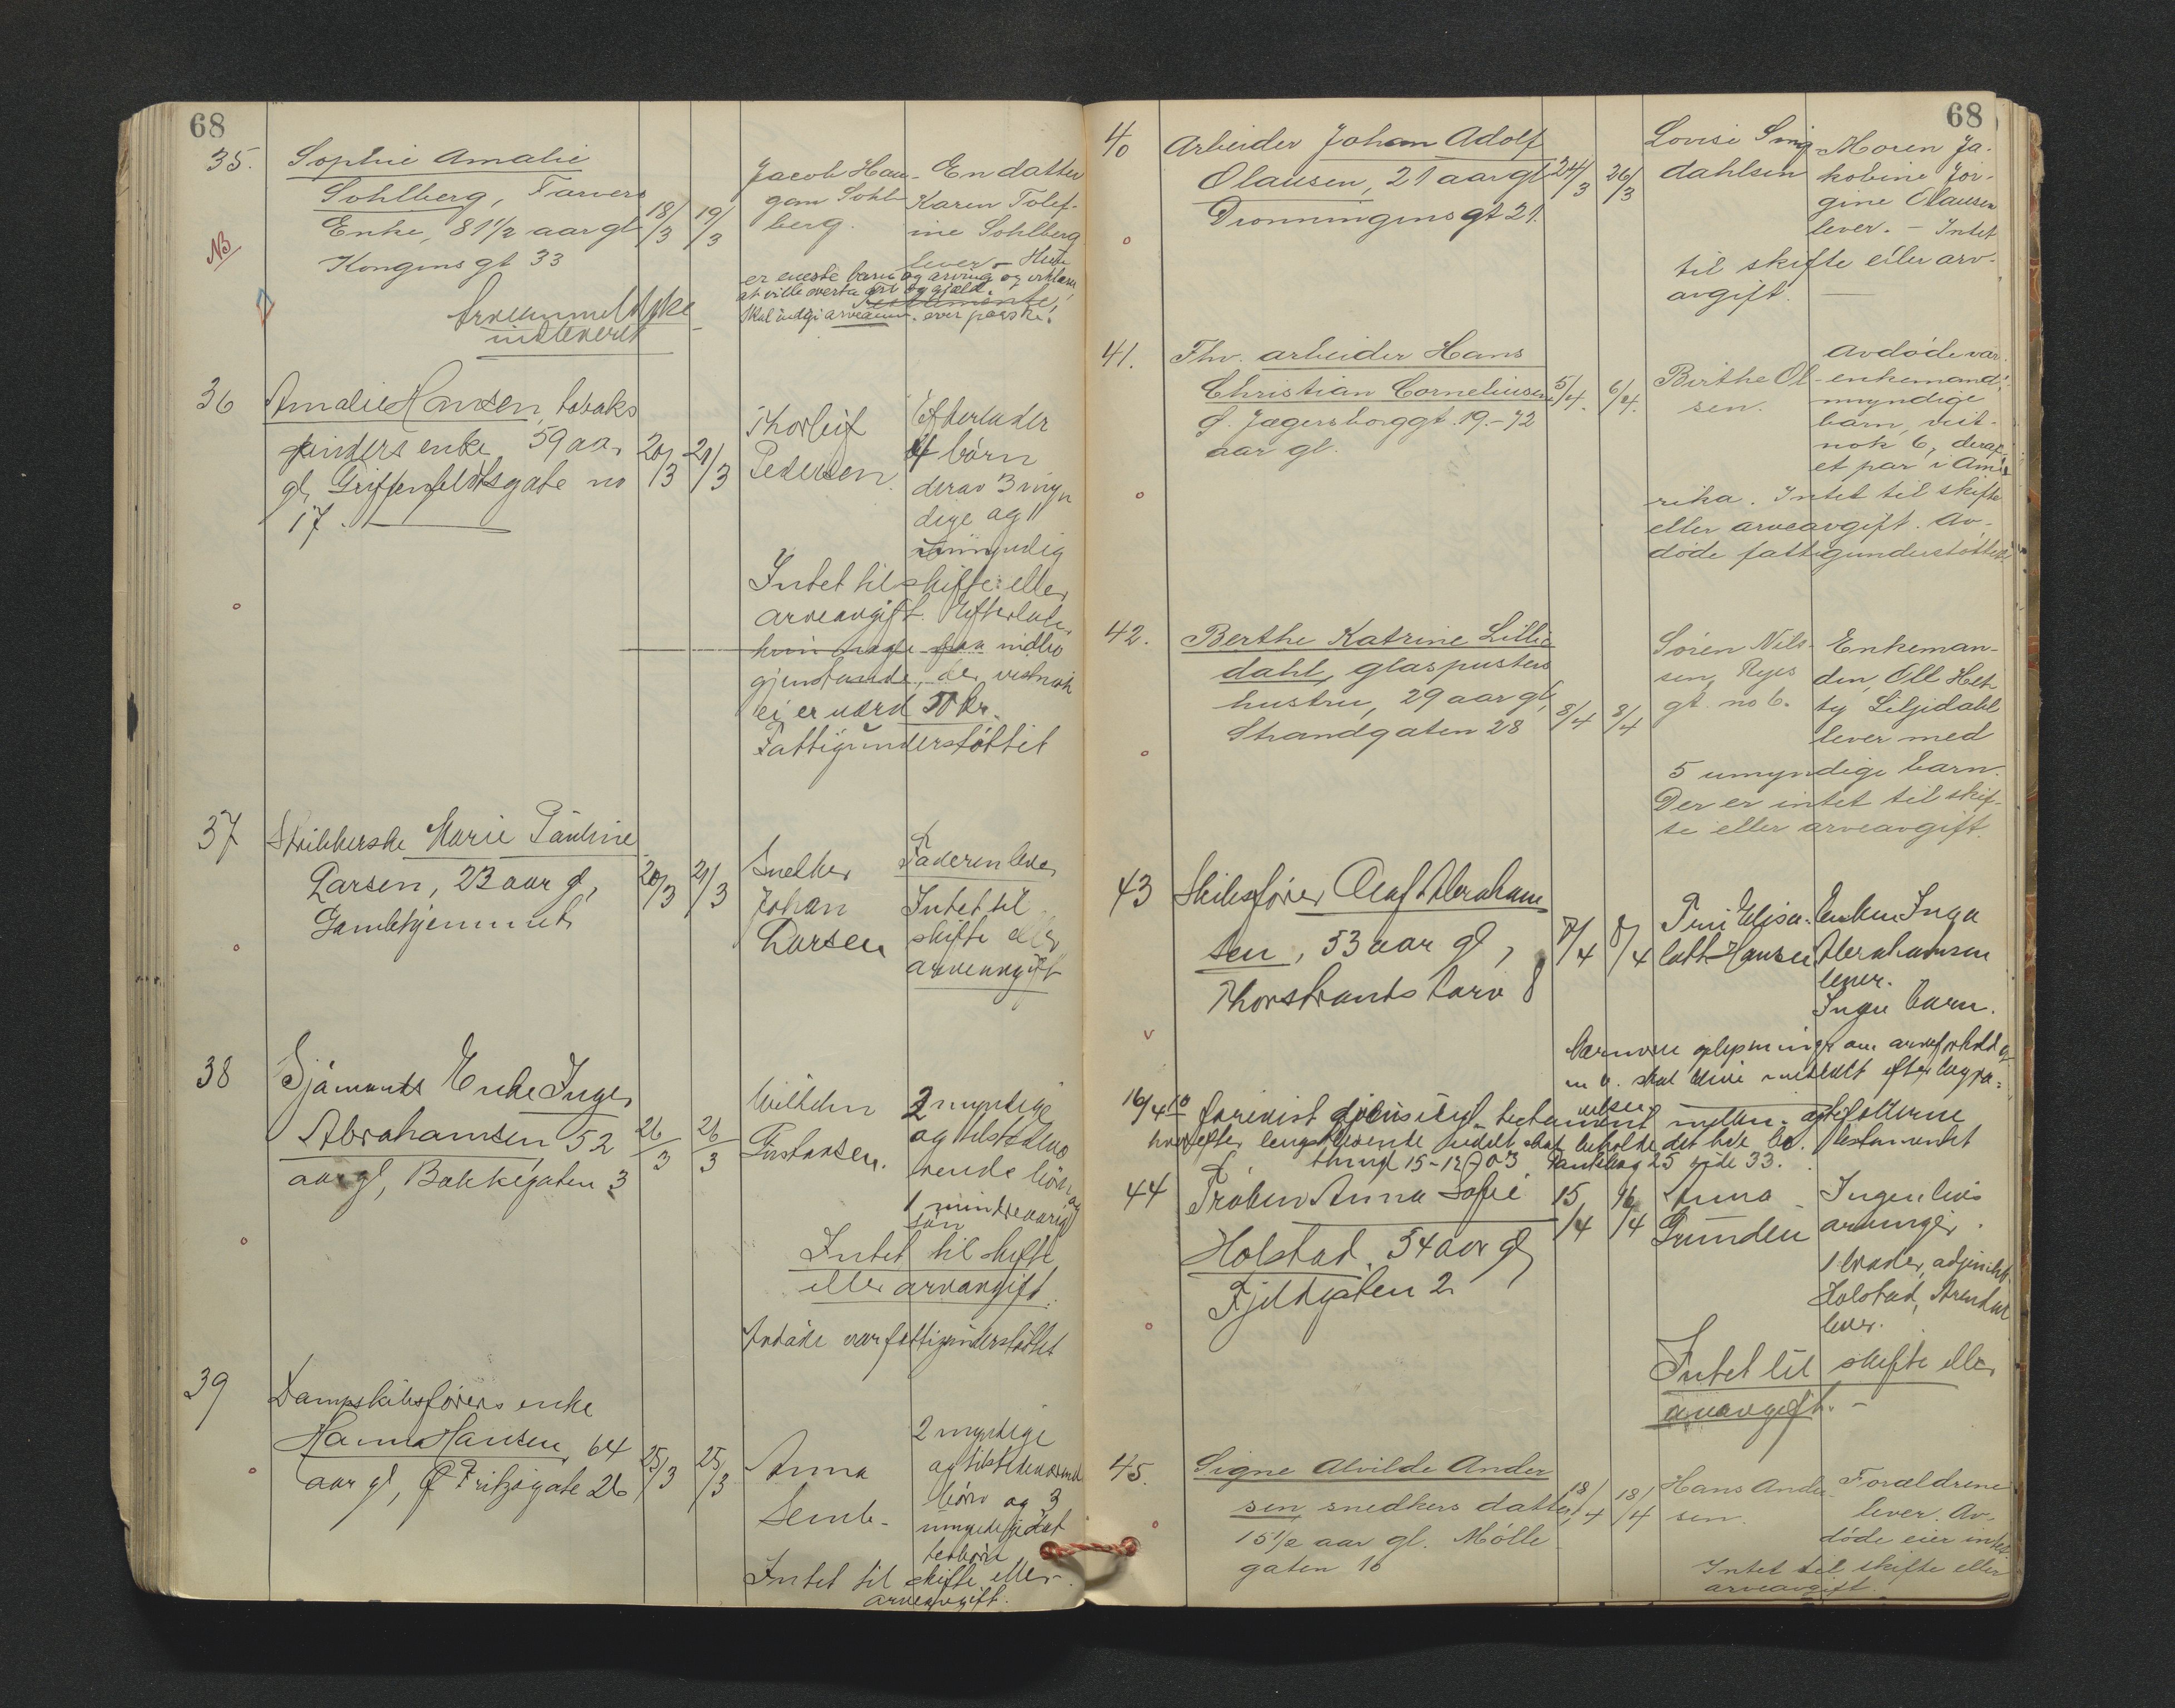 68
35.
Sophie Amalie
Sohlberg, Farvers
Enke, 81 1/2 aar gl
Kongens gt 33
NB
18/3 19/3
Jacob Hau-
gom Sohl-
berg.
En datter
Karen Tolef-
ine Sohlberg
lever. – Hun
er eneste barn og arving og erklærer
at ville overta arv og gjæld.
Skal indgi arveanm. over paaske!
indleveret
36
Amalie Hansen, tobaks
spinders enke 59 aar
gl, Griffenfeldtsgate no
17.
20/3 21/3
Thorleif
Pedersen
Efterlader
4 børn
derav 3 myn
dige og 1
umyndig
Intet til skifte eller
arveavgift. Efterlater
kun nogle faa indbo
gjenstande, der vistnok
ei er værd 50 kr.
Fattigunderstøttet
37
Strikkerske Marie Pauline
Larsen, 23 aar gl,
Gamlehjemmet
20/3 21/3
Snekker
Johan
Larsen
Faderen lever
Intet til
skifte eller
arveavgift
38
Sjømands Enke Inger
Abrahamsen 52
aar gl, Bakkegaten 3
26/3 26/3
Wilhelm
Gustavsen.
2 myndige
og tilstedevæ
rende børn og
1 mindreaarig
søn
Intet til skifte
eller arveavgift.
Avdøde var fattigunderstøttet
39
Dampskibsførers enke
Hanna Hansen, 64
aar gl, F Fritzøgate 26
25/3 25/3
Anna
Semb-
2 myndige
og tilstedeværende
børn og 3
umyndige dat
terbørn
Intet til skifte eller
arveavgift.
68
40
Arbeider Johan Adolf
Olausen, 21 aar gl
Dronningens gt 21.
24/3 26/3
Lovise Sing-
dahlsen
Moren Ja-
kobine Jør-
gine Olausen
lever. – Intet
til skifte eller arv-
avgift. —
41.
Fhv. arbeider Hans
Christian Corneliusen
G. Jægersborggt. 19. – 72
aar gl.
5/4. 6/4.
Birthe Ol-
sen.
Avdøde var
enkemand,
myndige
barn, vist-
nok 6, derav
et par i Ame
rika. Intet til skifte
eller arveavgift. Av-
døde fattigunderstøttet.
42.
Berthe Katrine Lillie
dahl, glaspusters
hustru, 29 aar gl,
Strandgaten 28
8/4 8/4
Søren Nils-
sen, Reyes
gt. no 6.
Enkeman-
den, Oll Het
ty Liljedahl
lever med
5 umyndige barn.
Der er intet til skif-
te eller arveavgift.
43
Skibsfører Olaf Abraham-
sen, 53 aar gl,
Thorstrands torv 8
7/4 8/4
Tini Elisa-
beth Hansen
Enken Inga
Abrahamsen
lever.
Ingen barn.
Nærmere oplysninger om arveforhold og
m v. skal blive meddelt efter begra-
velsen
16/4 10 forevist gjensidig testament mellem ægtefællerne
hvorefter længstlevende skal beholde det hele bo. Testamentet
thingl 15-12-03 Pantebog 25 side 33.
44
Frøken Anna Sofie
Holstad, 54 aar gl
Fjeldgaten 2
15/4 16/4
Anna
Grunden
Ingen livs
arvinger.
1 broder, adjunkt
Holstad, Arendal
lever.
Intet til skifte eller
arveavgift. –
45.
Signe Alvilde Ander
sen, snedkers datter,
15 1/2 aar gl. Mølle
gaten 10
18/4 18/4
Hans Ander-
sen.
Forældrene
lever. Av-
døde eier intet.
Intet til skifte eller
arveavgift.